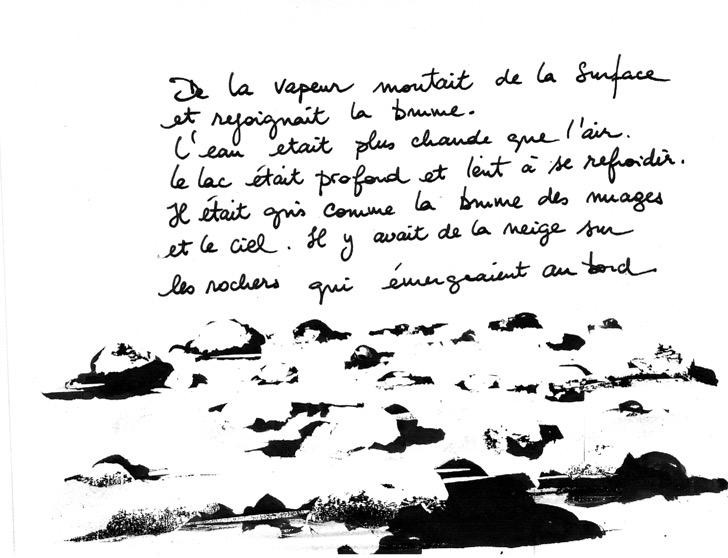 De la vapeur montait de la surface
et rejoignait la brume.
L'eau etait plus chaude que l'air.
Le lac était profond et lent à se refroidir.
Il était gris comme la brume des nuages
et le ciel. Il y avait de la neige sur
les rochers qui émergeaient au bord